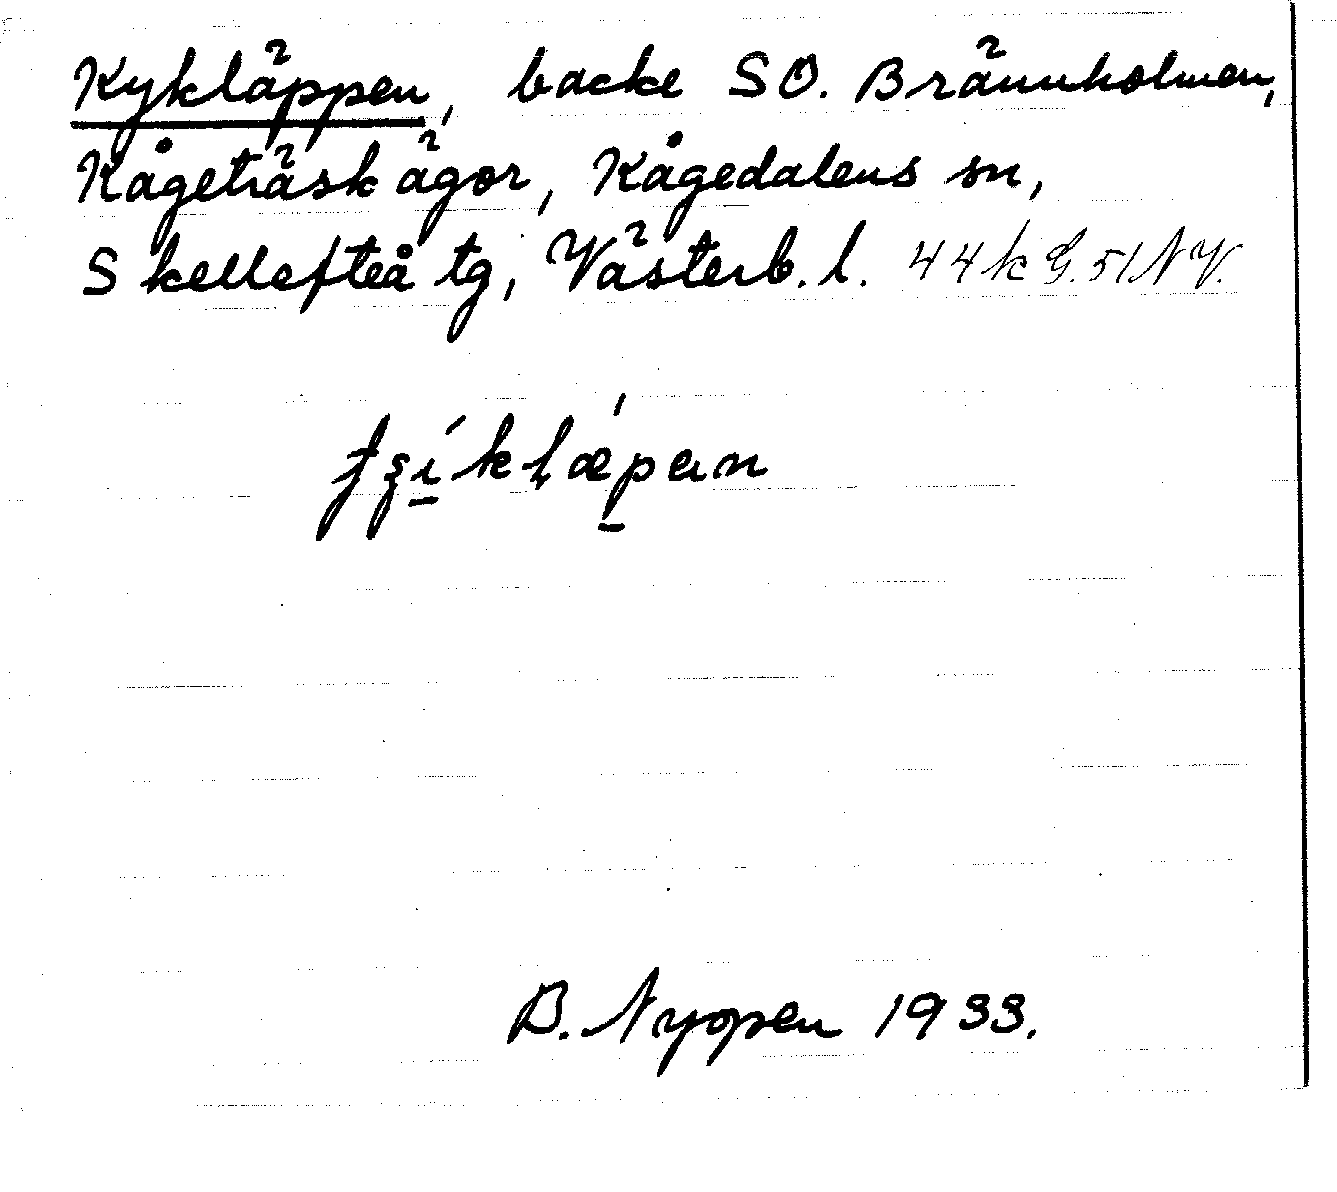 Kykläppen, backe SO. Brännholmen,
Kågeträsk ägor, Kågedalens sn,
Skellefteå tg, Västerb. l. 44 k G. 51 NV.
B. Nyopen 1933.